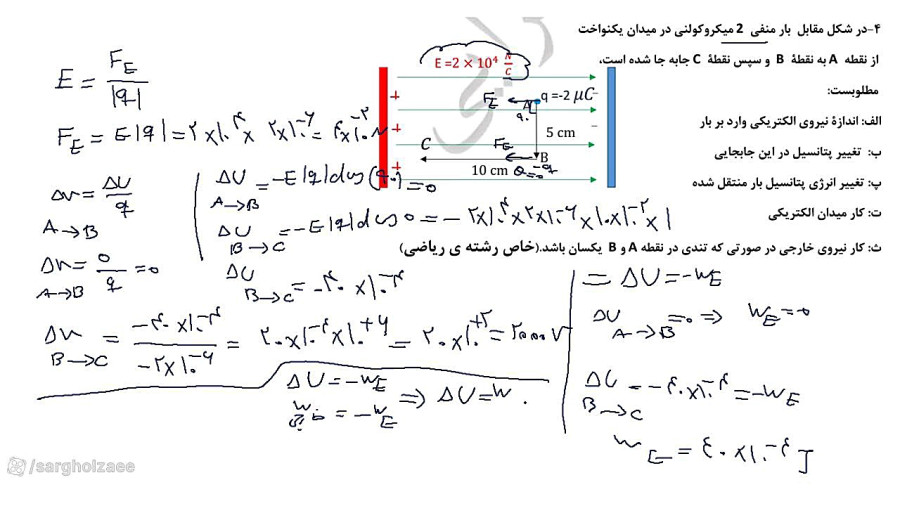 ۴-در شکل مقابل بار منفی 2 میکروکولنی در میدان یکنواخت
از نقطه A به نقطهٔ B و سپس نقطهٔ C جابه جا شده است،
مطلوبست:
الف: اندازهٔ نیروی الکتریکی وارد بر بار
ب: تغییر پتانسیل در این جابجایی
پ: تغییر انرژی پتانسیل بار منتقل شده
ت: کار میدان الکتریکی
ث: کار نیروی خارجی در صورتی که تندی در نقطه A و B یکسان باشد.(خاص رشته ی ریاضی)
E =2 × 10⁴ N/C
q =-2 μC
F_E
A
5 cm
C
F_E
B
10 cm
θ=0
E = F_E / |q|
F_E = E|q| = ۲×۱۰^۴ × ۲×۱۰^-۶ = ۴×۱۰^-۲ N
ΔU A→B = -E|q|d cos(۹۰) = 0
ΔU B→C = -E|q|d cos 0 = -۲×۱۰^۴×۲×۱۰^-۶×۱۰×۱۰^-۲×۱
ΔU B→C = -۴۰×۱۰^-۴
ΔV = ΔU / q
A→B
ΔV A→B = 0 / q = 0
ΔV B→C = -۴۰×۱۰^-۴ / -۲×۱۰^-۶ = ۲۰×۱۰^-۴×۱۰^+۶ = ۲۰×۱۰^+۲ = ۲۰۰۰ V
ΔU = -W_E
W خارجی = -W_E ⇒ ΔU = W
= ΔU = -W_E
ΔU A→B = 0 ⇒ W_E = 0
ΔU B→C = -۴۰×۱۰^-۴ = -W_E
W_E = ۴۰×۱۰^-۴ J
/sargholzaee